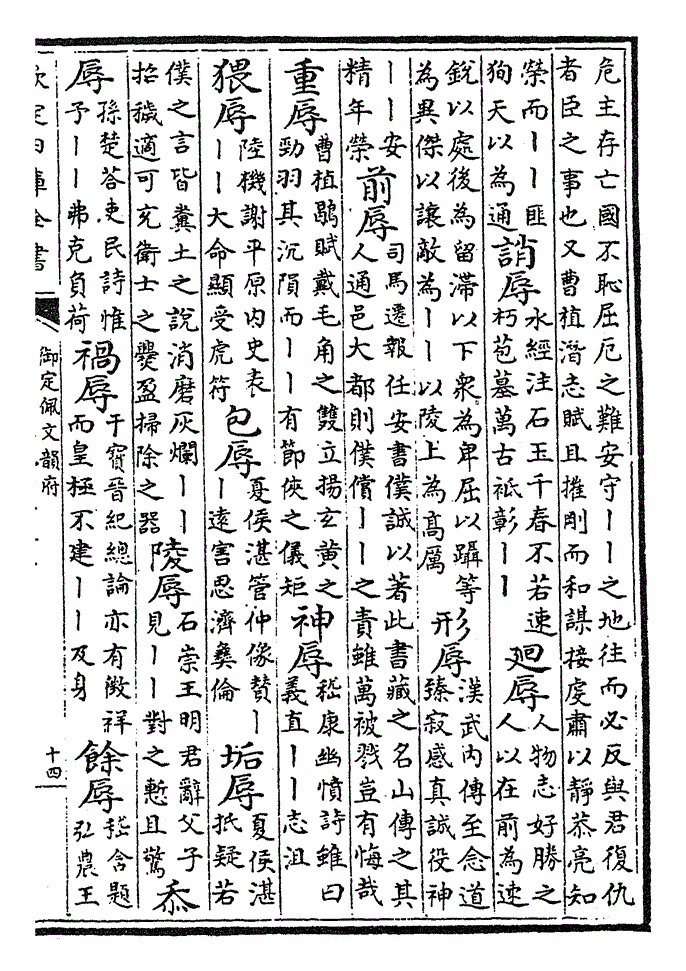 危主存亡國不恥屈厄之難安守丨丨之地往而必反與君復仇
者臣之事也又曹植潛志賦且摧剛而和謀接䖍肅以靜恭亮知
榮而丨丨匪
狥天以為通
誚辱
水經注石玉千春不若速
朽苞墓萬古祗彰丨丨
廻辱
人物志好勝之
人以在前為速
銳以處後為留滯以下衆為卑屈以躡等
為異傑以讓敵為丨丨以陵上為高厲
形辱
漢武内傳至念道
臻寂感真誠役神
丨丨安
精年榮
前辱
司馬遷報任安書僕誠以著此書藏之名山傳之其
人通邑大都則僕償丨丨之責雖萬被戮豈有悔哉
重辱
曹植鶡賦戴毛角之雙立揚玄黄之
勁羽其沉隕而丨丨有節俠之儀矩
神辱
嵇康幽憤詩雖曰
義直丨丨志沮
猥辱
陸機謝平原内史表
丨丨大命顯受虎符
包辱
夏侯湛管仲像賛丨
丨遠害思濟彞倫
垢辱
夏侯湛
抵疑若
僕之言皆糞土之說消磨灰爛丨丨
招穢適可充衛士之爨盈掃除之器
陵辱
石崇王明君辭父子
見丨丨對之慙且驚
忝
辱
孫楚荅吏民詩惟
予丨丨弗克負荷
禍辱
干寶晉紀總論亦有徵祥
而皇極不建丨丨及身
餘辱
嵇含題
弘農王
欽定四庫全書
御定佩文韻府
十四